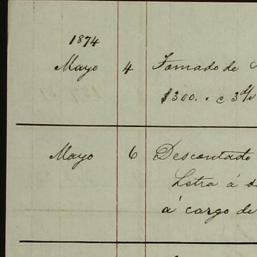 1874
Mayo 4 Tomado de
$300. c 3 d/
Mayo 6 Descontado
Letra á
á cargo de